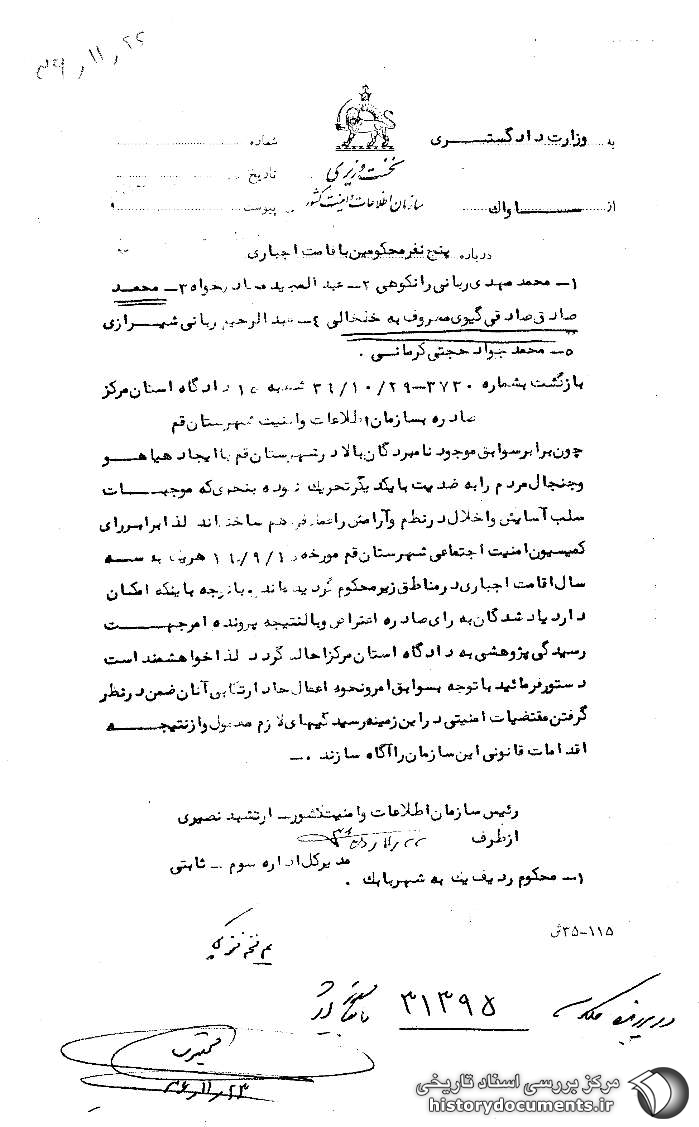 به وزارت دادگستری
شماره
نخست وزیری
تاریخ
از ساواك
سازمان اطلاعات و امنیت کشور
پیوست
درباره پنج نفر محکومین با قامت اجباری
۱ـ محمد مهدی ربانی رانکوهی ۲ـ عبدالمجید معادیخواه ۳ـ محمد
صادق صادقی گیوی معروف به خلخالی ٤ـ عبدالرحیم ربانی شیرازی
٥ـ محمد جواد حجتی کرمانی .
بازگشت بشماره ۳۷۲۰ـ شعبه ۱٥ دادگاه استان مرکز
صادره بسازمان اطلاعات و امنیت شهرستان قم
چون برابر سوابق موجود نامبردگان بالا در شهرستان قم با ایجاد هیاهو
و جنجال مردم را به ضدیت با یکدیگر تحریك نموده بنحوی که موجبات
سلب آسایش و اخلال در نظم و آرامش را فراهم ساخته اند لذا برابر رای
کمیسیون امنیت اجتماعی شهرستان قم مورخه هریك به سه
سال اقامت اجباری در مناطق زیر محکوم گردیده اند با توجه باینکه امکان
دارد یاد شدگان به رای صادره اعتراض و بالنتیجه پرونده امر جهت
رسیدگی پژوهشی به دادگاه استان مرکز احاله گردد لذا خواهشمند است
دستور فرمائید با توجه بسوابق امر و نحوه اعمال حاد ارتکابی آنان ضمن در نظر
گرفتن مقتضیات امنیتی در این زمینه رسیدگیهای لازم معمول و از نتیجه
اقدامات قانونی این سازمان را آگاه سازند .ـ
رئیس سازمان اطلاعات و امنیت کشور ـ ارتشبد نصیری
از طرف
مدیرکل اداره سوم ـ ثابتی
۱ـ محکوم ردیف یك به شهربابك .
۱۱٥ـ۳٥ش
۳۱۳۹۵
مرکز بررسی اسناد تاریخی
historydocuments.ir